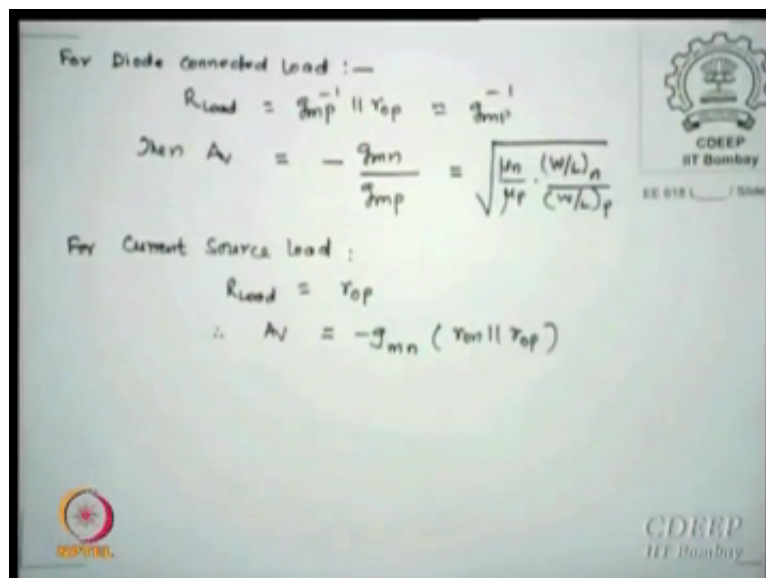 For Diode Connected Load :—
R_Load = g_mp^-1 || r_op = g_mp^-1
Then A_V = - g_mn / g_mp = √( μn/μp · (W/L)_n / (W/L)_p )
For Current Source Load :
R_Load = r_op
∴ A_V = -g_mn ( r_on || r_op )
CDEEP
IIT Bombay
EE 618 L___ / Slide
NPTEL
CDEEP
IIT Bombay